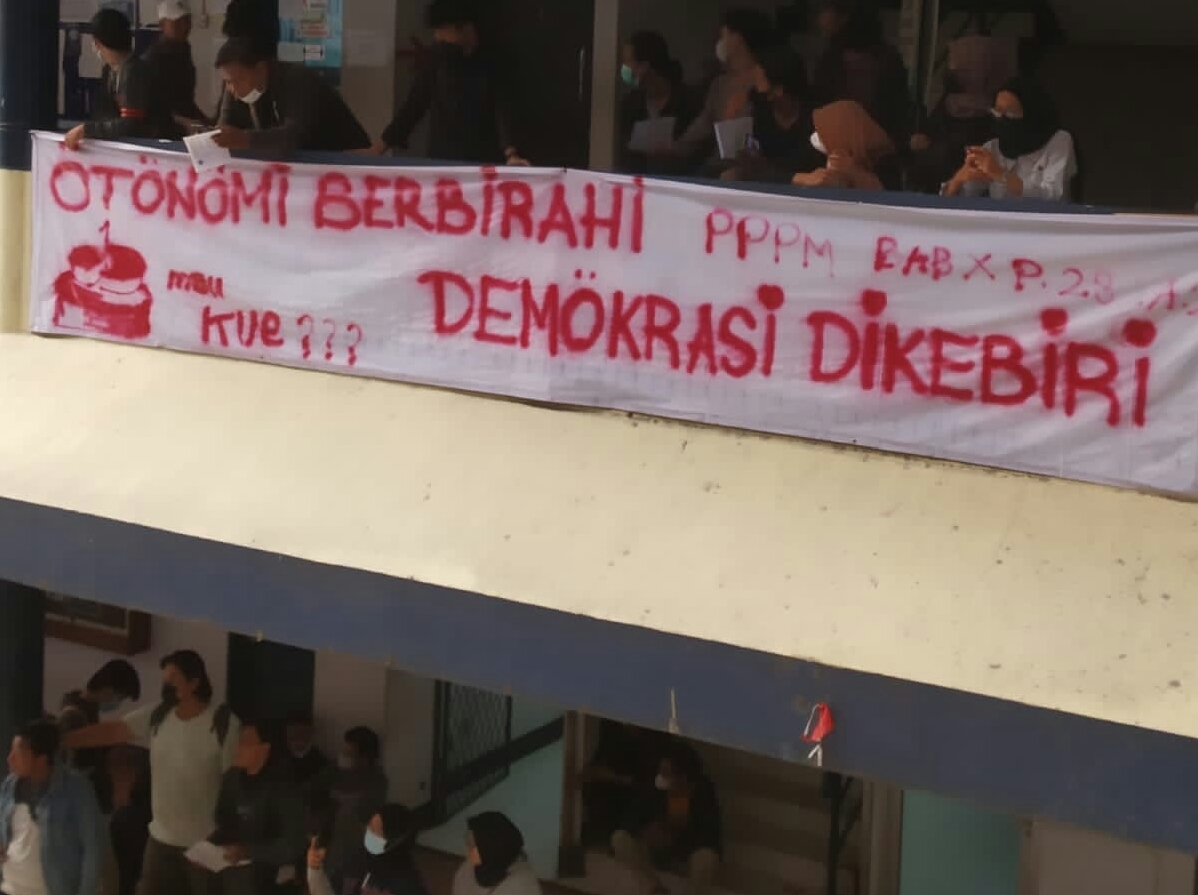 OTÖNÖMİ BERBİRAHİ PPPM BAB X P.28
mau
KUE ???
DEMÖKRASİ DİKEBİRİ